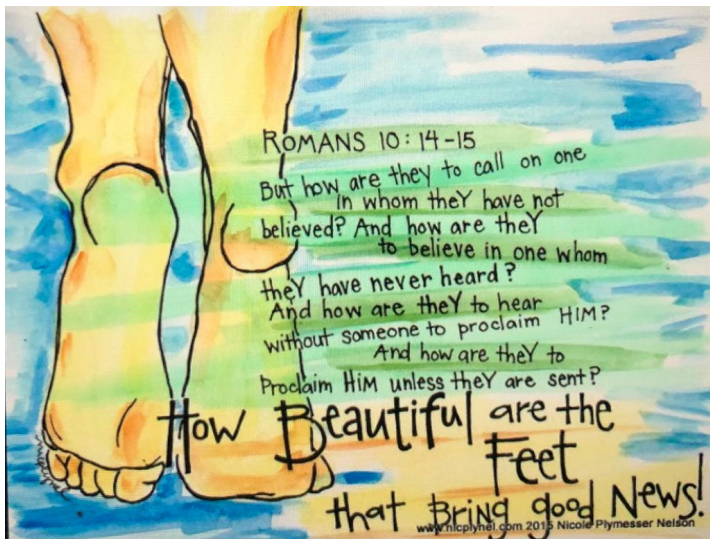 ROMANS 10:14-15
But how are they to call on one
in whom theY have not
believed? And how are theY
to believe in one whom
theY have never heard?
And how are theY to hear
without someone to proclaim HIM?
And how are theY to
Proclaim HiM unless theY are sent?
How Beautiful are the
Feet
that Bring good News!
www.nicplynel.com 2015 Nicole Plymesser Nelson